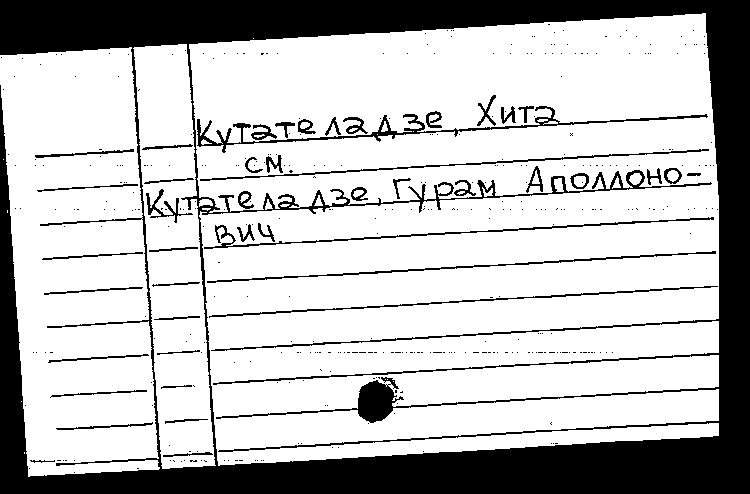 Кутателадзе, Хита
см.
Кутателадзе, Гурам Аполлоно-
вич.